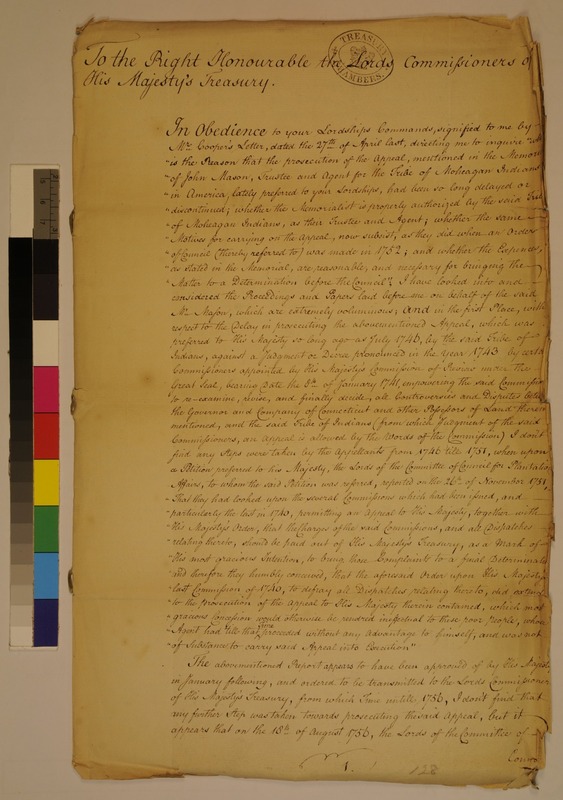 To the Right Honourable the Lords Commissioners of
His Majesty's Treasury.
TREASURY
CHAMBERS.
In Obedience to your Lordships Commands, signified to me by
Mr. Cooper's Letter, dated the 27th of April last, directing me to inquire
"is the Reason that the prosecution of the Appeal, mentioned in the
"of John Mason, Trustee and Agent for the Tribe of Moheagan Indians
"in America, lately prefered to your Lordships, had been so long delayed or
"discontinued; whether the Memorialist is properly authorized by the said
"of Moheagan Indians, as their Trustee and Agent; whether the same
"Motives for carrying on the Appeal, now subsist, as they did when an Order
"of Council (thereby referred to) was made in 1752; and whether the Expences,
"as stated in the Memorial, are reasonable, and necessary for bringing the
"Matter to a Determination before the Council"; I have looked into and
considered the Proceedings and Papers laid before me on behalf of the said
Mr. Mason, which are extremely voluminous; And in the first Place, with
respect to the Delay in prosecuting the abovementioned Appeal, which was
preferred to His Majesty so long ago as July 1746, by the said Tribe of
Indians, against a Judgment or Decree pronounced in the Year 1743 by
Commissioners appointed by His Majesty's Commission of Review under the
Great Seal, bearing Date the 8th of January 1741, empowering the said
to re-examine, revise, and finally decide, all Controversies and Disputes
the Governor and Company of Connecticut and other Possessors of Land therein
mentioned, and the said Tribe of Indians (from which Judgment of the said
Commissioners, an Appeal is allowed by the Words of the Commission) I don't
find any Steps were taken by the Appellants from 1746 till 1751, when upon
a Petition preferred to his Majesty, the Lords of the Committee of Council for Plantation
Affairs, to whom the said Petition was referred, reported on the 26th of November 1751,
"That they had looked upon the several Commissions which had been issued, and
"particularly the last in 1740, permitting an Appeal to His Majesty, together with
"His Majesty's Order, that the Charges of the said Commissions, and all Dispatches
"relating thereto, should be paid out of His Majesty's Treasury, as a Mark of
"His most gracious Intention, to bring those Complaints to a final
"and therefore they humbly conceived, that the aforesaid Order upon His Majesty's
"last Commission of 1740, to defray all Dispatches relating thereto, did extend
"to the prosecution of the Appeal to His Majesty therein contained, which most
"gracious Concession would otherwise be rendred ineffectual to these poor People, whose
"Agent had till that time proceeded without any advantage to himself, and was not
"of Substance to carry said Appeal into Execution"
The abovementioned Report appears to have been approved of by His Majesty
in January following, and ordered to be transmitted to the Lords Commissioners
of His Majesty's Treasury, from which Time untill 1756, I don't find that
any further Step was taken towards prosecuting the said Appeal, but it
appears that on the 18th of August 1756, the Lords of the Committee of
128